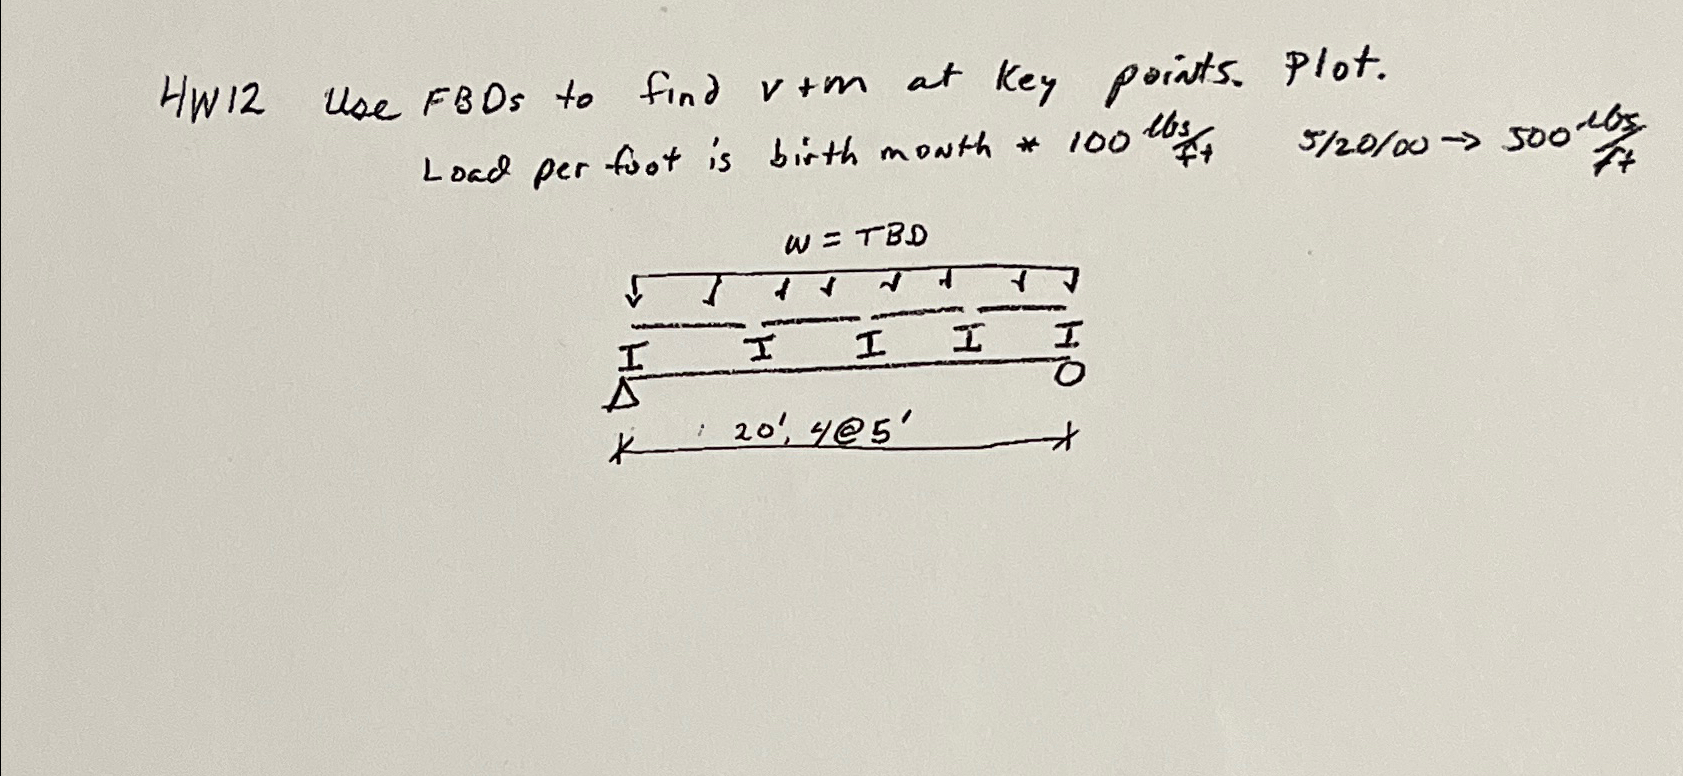 HW12 Use FBDs to find v+m at key points. Plot.
Load per foot is birth month * 100 lbs/ft 5/20/00 → 500 lbs/ft
w = TBD
I I I I I
20', 4@5'